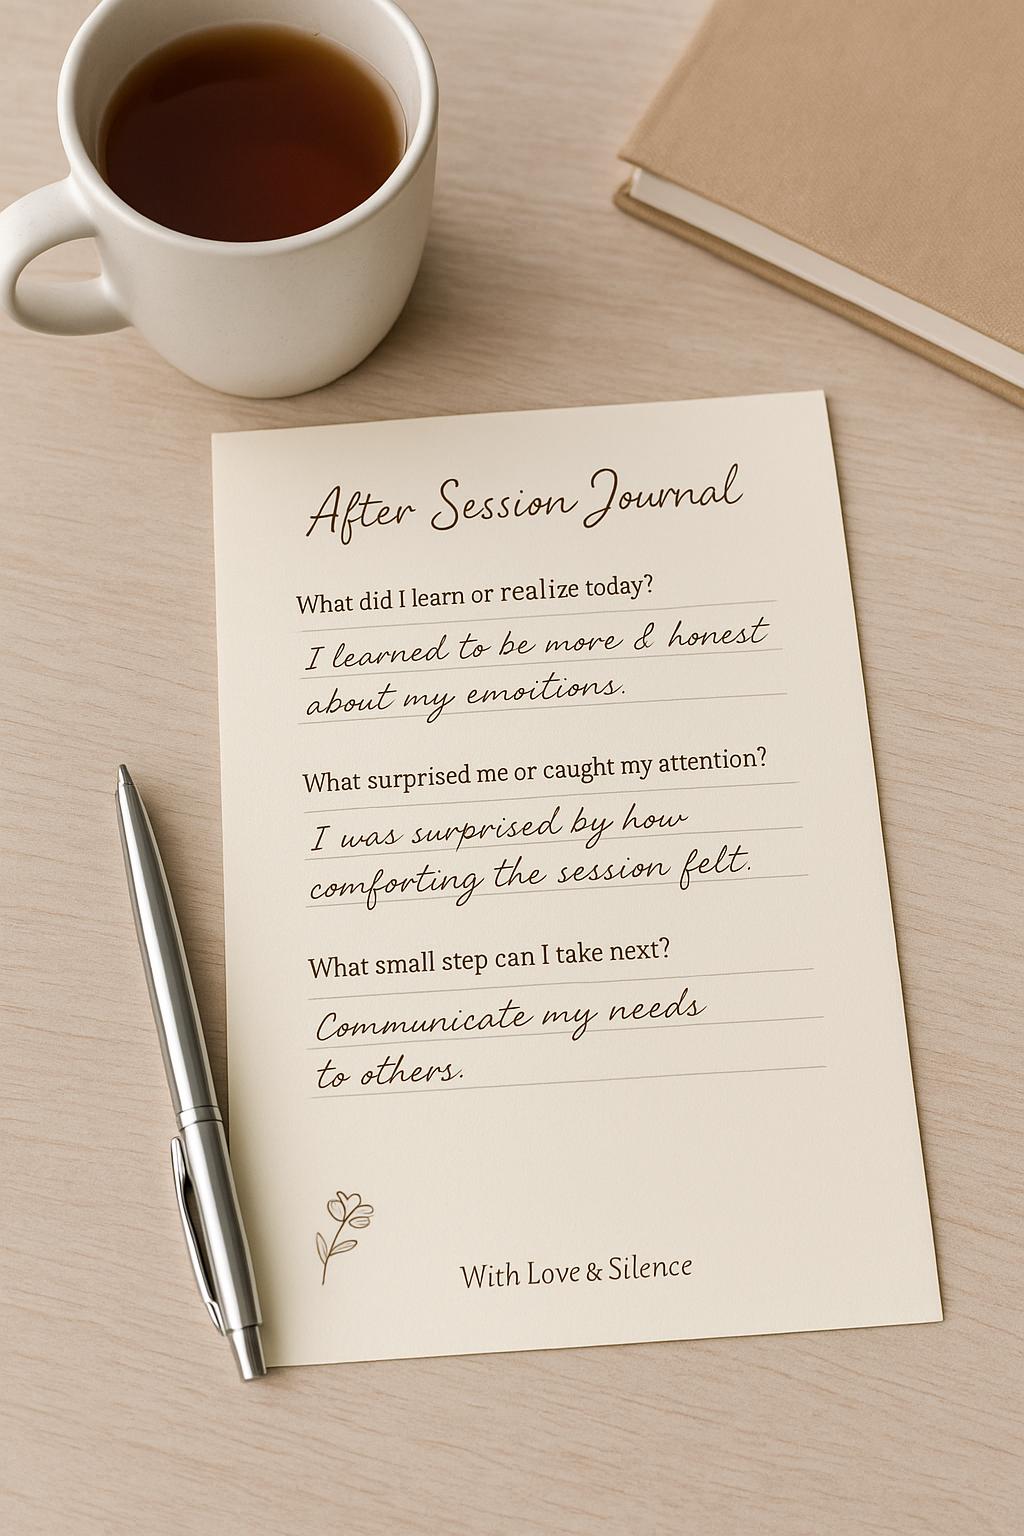 After Session Journal
What did I learn or realize today?
I learned to be more & honest
about my emoitions.
What surprised me or caught my attention?
I was surprised by how
comforting the session felt.
What small step can I take next?
Communicate my needs
to others.
With Love & Silence